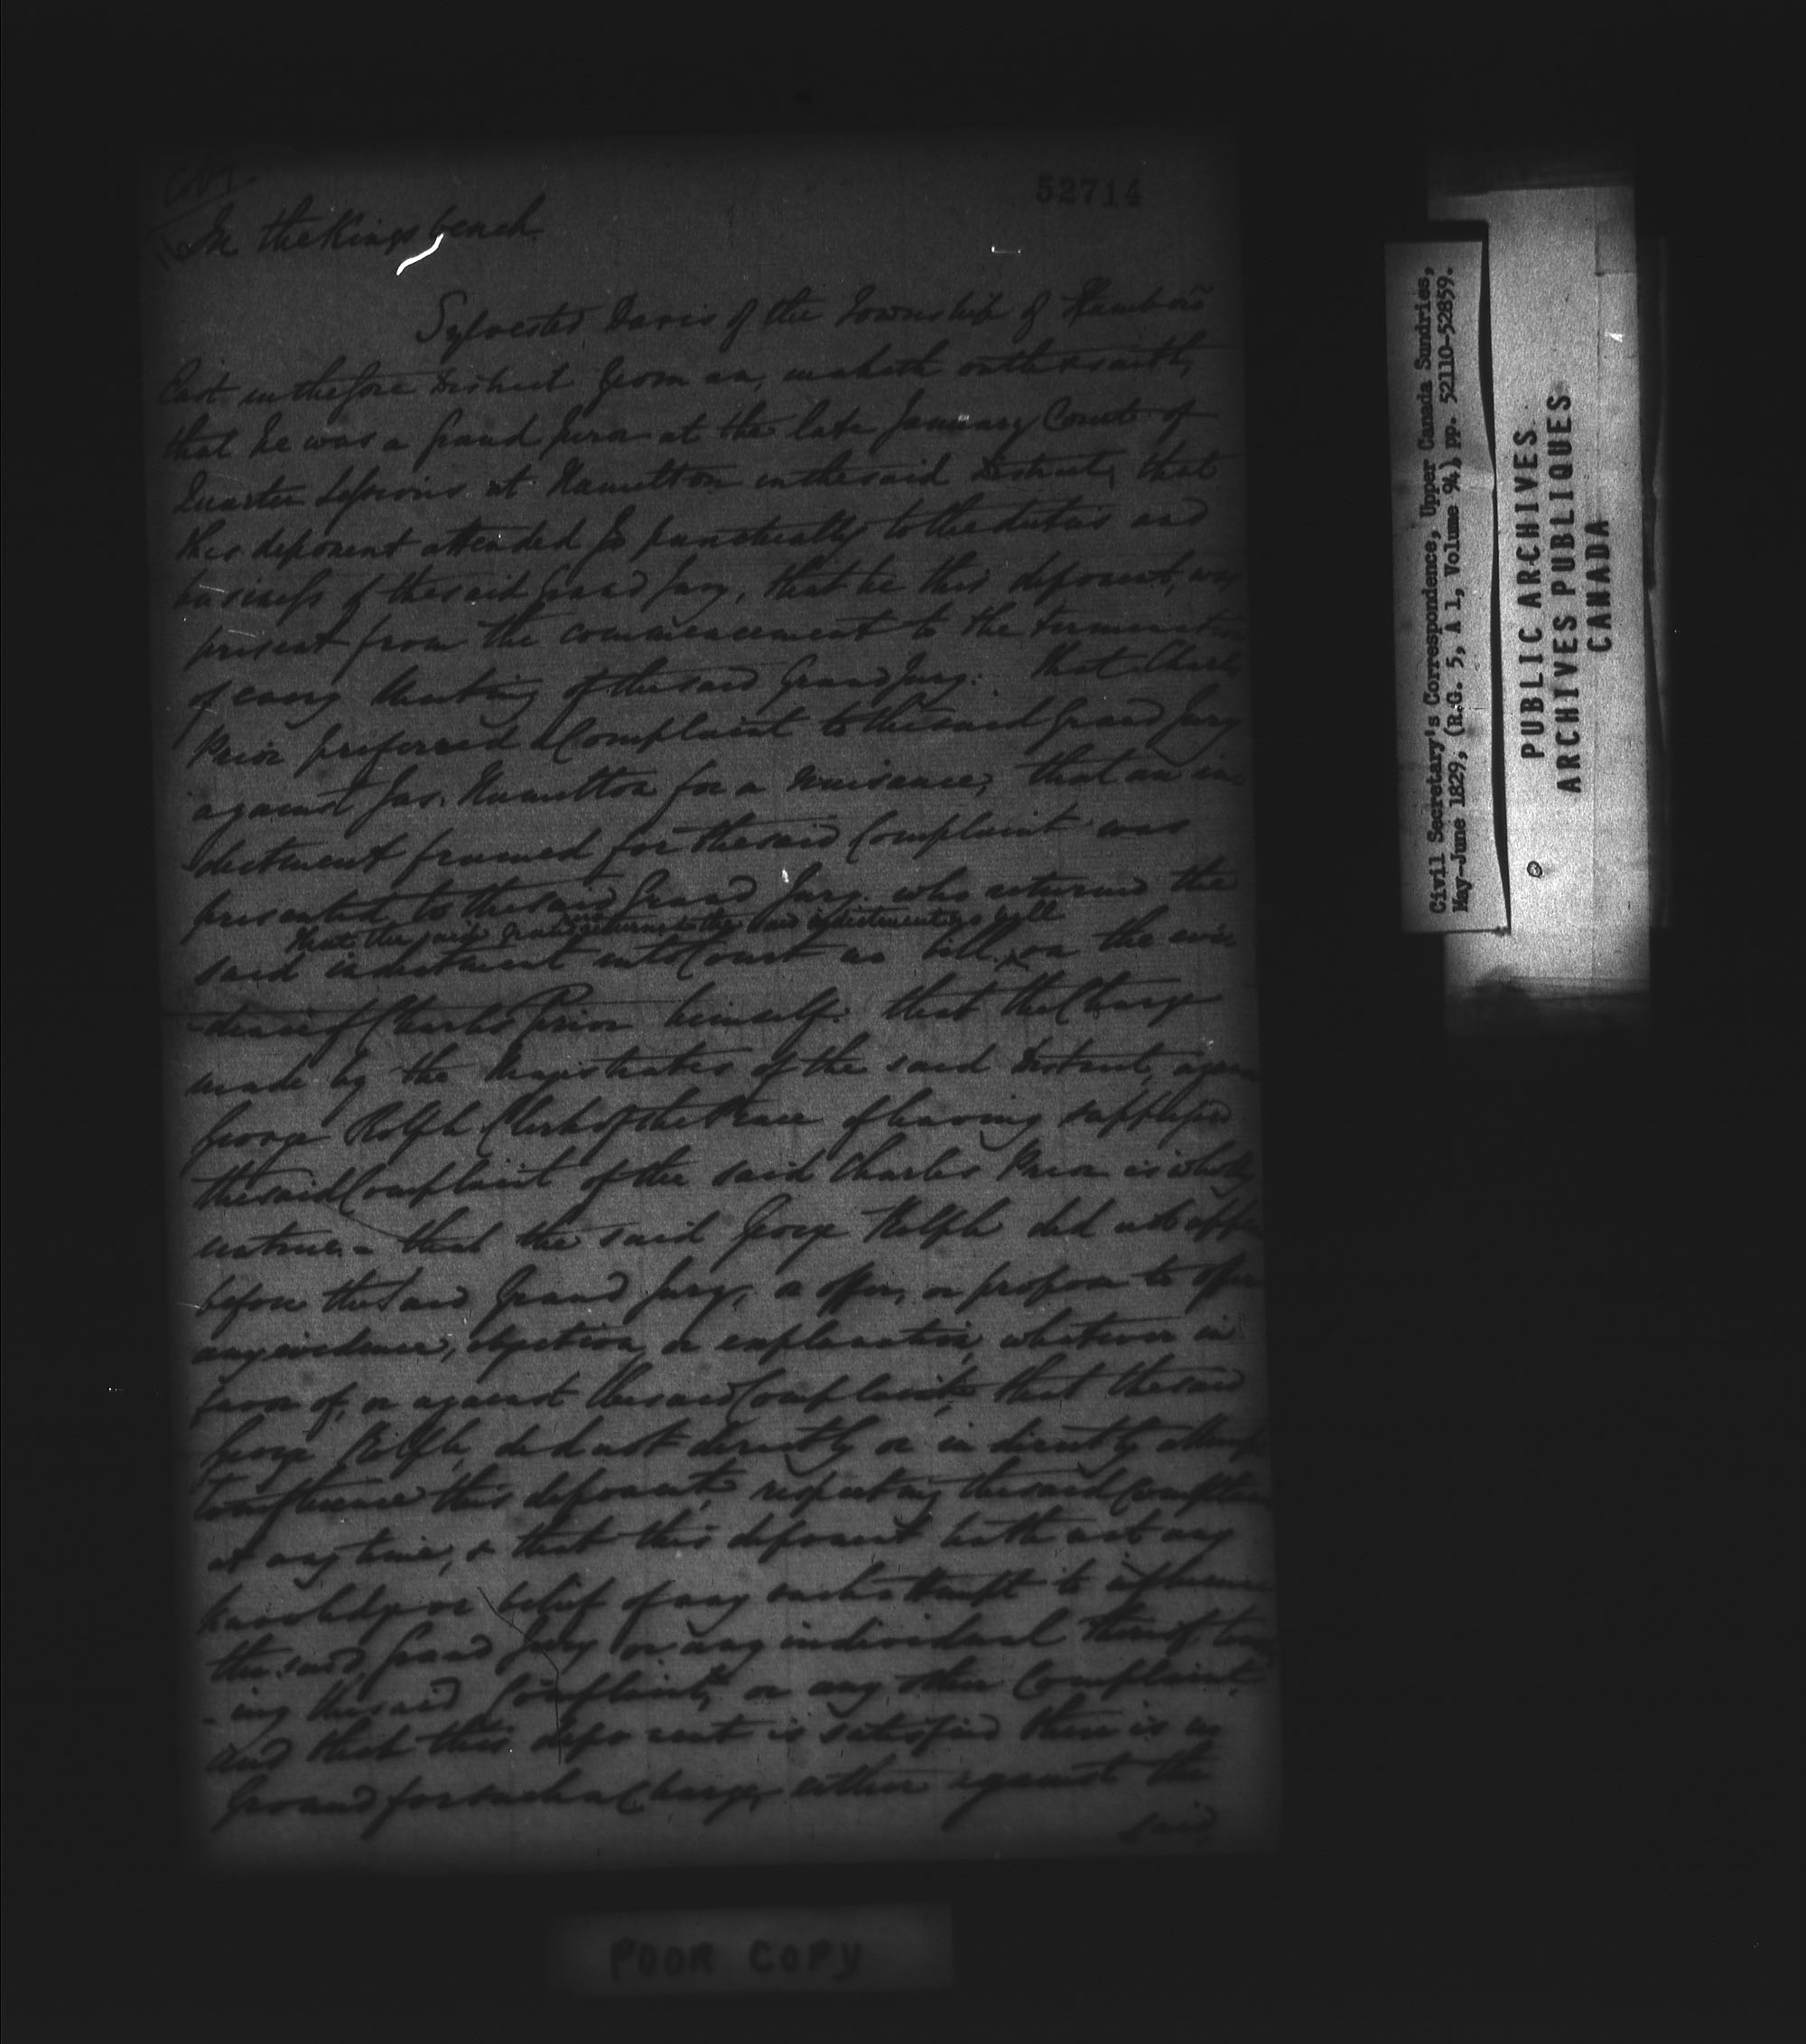 Copy.
52714
In the Kings bench
Sylvester Davis of the Township of Flamboro
East in the Gore District Yeoman, maketh oath & saith,
that he was a Grand Juror at the late January Court of
Quarter Sessions at Hamilton in the said District, that
this deponent attended punctually to the duties and
business of the said Grand Jury, that he this deponent, was
present from the commencement to the termination
of every meeting of the said Grand Jury. that Charles
Prior preferred a Complaint to the said Grand Jury
against Jas. Hamilton for a nuisance, that an in
-dictment framed for the said Complaint was
presented to the said Grand Jury who returned the
that the said Grand returned the said indictment
said indictment into Court no bill, on the evi
-dence of Charles Prior himself. that the Charge
made by the Magistrates of the said District, again
George Rolph Clerk of the Peace of having suppressed
the said Complaint of the said Charles Prior is wholly
untrue. - that the said George Rolph did not appe
before the said Grand Jury, or offer, or propose to offer
any evidence, objection or explanation, whatever in
favor of, or against the said Complaint, that the said
George Rolph, did not directly or indirectly attempt
to influence this deponent, respecting the said Complain
at any time, & that this deponent hath not any
knowledge or belief of any such attempt to influence
the said Grand Jury or any individual thereof, touch
-ing the said Complaint, or any other Complaint.
and that this deponent is satisfied there is no
Ground for such a Charge, either against the
said
POOR COPY
Civil Secretary's Correspondence, Upper Canada Sundries,
May-June 1829, (R.G. 5, A 1, Volume 94) pp. 52110-52859.
PUBLIC ARCHIVES
ARCHIVES PUBLIQUES
CANADA